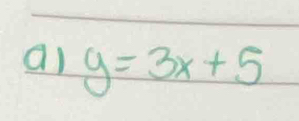 a) y = 3x + 5